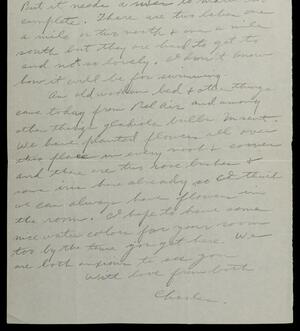 But it needs a river to make it
complete. There are two lakes one
a mile or two north & one a mile
south but they are hard to get to
and not so lovely. I don't know
how it will be for swimming.
An old wooden bed & other things
came today from Bel Air and among
other things gladiola bulbs M sent.
We have planted flowers all over
this place in every nook & corner
and there are two rose bushes &
some iris here already so I think
we can always have flowers in
the room. I hope to have some
nice water colors for your room
too by the time you get here. We
are both anxious to see you
With love from both
Charles.